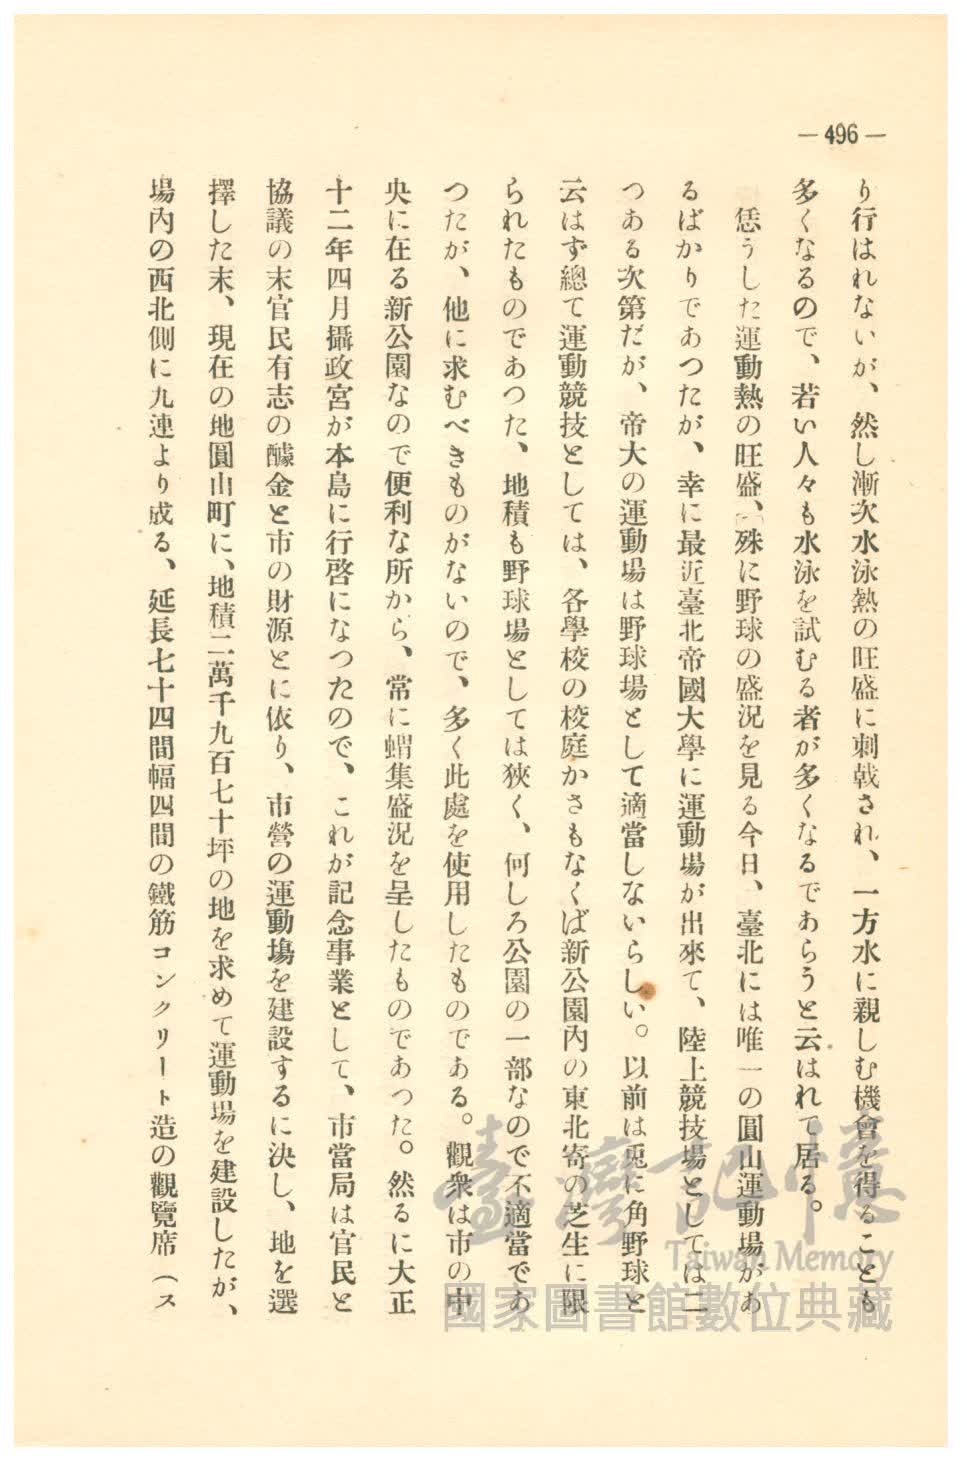 — 496 —
り行はれないが、然し漸次水泳熱の旺盛に刺戟され、一方水に親しむ機會を得ることも
多くなるので、若い人々も水泳を試むる者が多くなるであらうと云はれて居る。
恁うした運動熱の旺盛、殊に野球の盛況を見る今日、臺北には唯一の圓山運動場があ
るばかりであつたが、幸に最近臺北帝國大學に運動場が出來て、陸上競技場としては二
つある次第だが、帝大の運動場は野球場として適當しないらしい。以前は兎に角野球と
云はず總て運動競技としては、各學校の校庭かさもなくば新公園内の東北寄の芝生に限
られたものであつた、地積も野球場としては狹く、何しろ公園の一部なので不適當であ
つたが、他に求むべきものがないので、多く此處を使用したものである。觀衆は市の中
央に在る新公園なので便利な所から、常に蝟集盛況を呈したものであつた。然るに大正
十二年四月攝政宮が本島に行啓になつたので、これが記念事業として、市當局は官民と
協議の末官民有志の醵金と市の財源とに依り、市營の運動塲を建設するに決し、地を選
擇した末、現在の地圓山町に、地積二萬千九百七十坪の地を求めて運動場を建設したが、
場内の西北側に九連より成る、延長七十四間幅四間の鐵筋コンクリート造の觀覽席（ス
臺灣記憶
Taiwan Memory
國家圖書館數位典藏